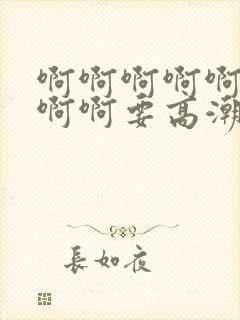 啊啊啊啊啊
啊啊要高潮
長如夜